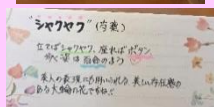 "シャクヤク" (芍薬)
立てばシャクヤク、座ればボタン、
歩く姿は百合のよう
美人の表現にも用いられる 美しい存在感の
ある大輪の花ですね♪